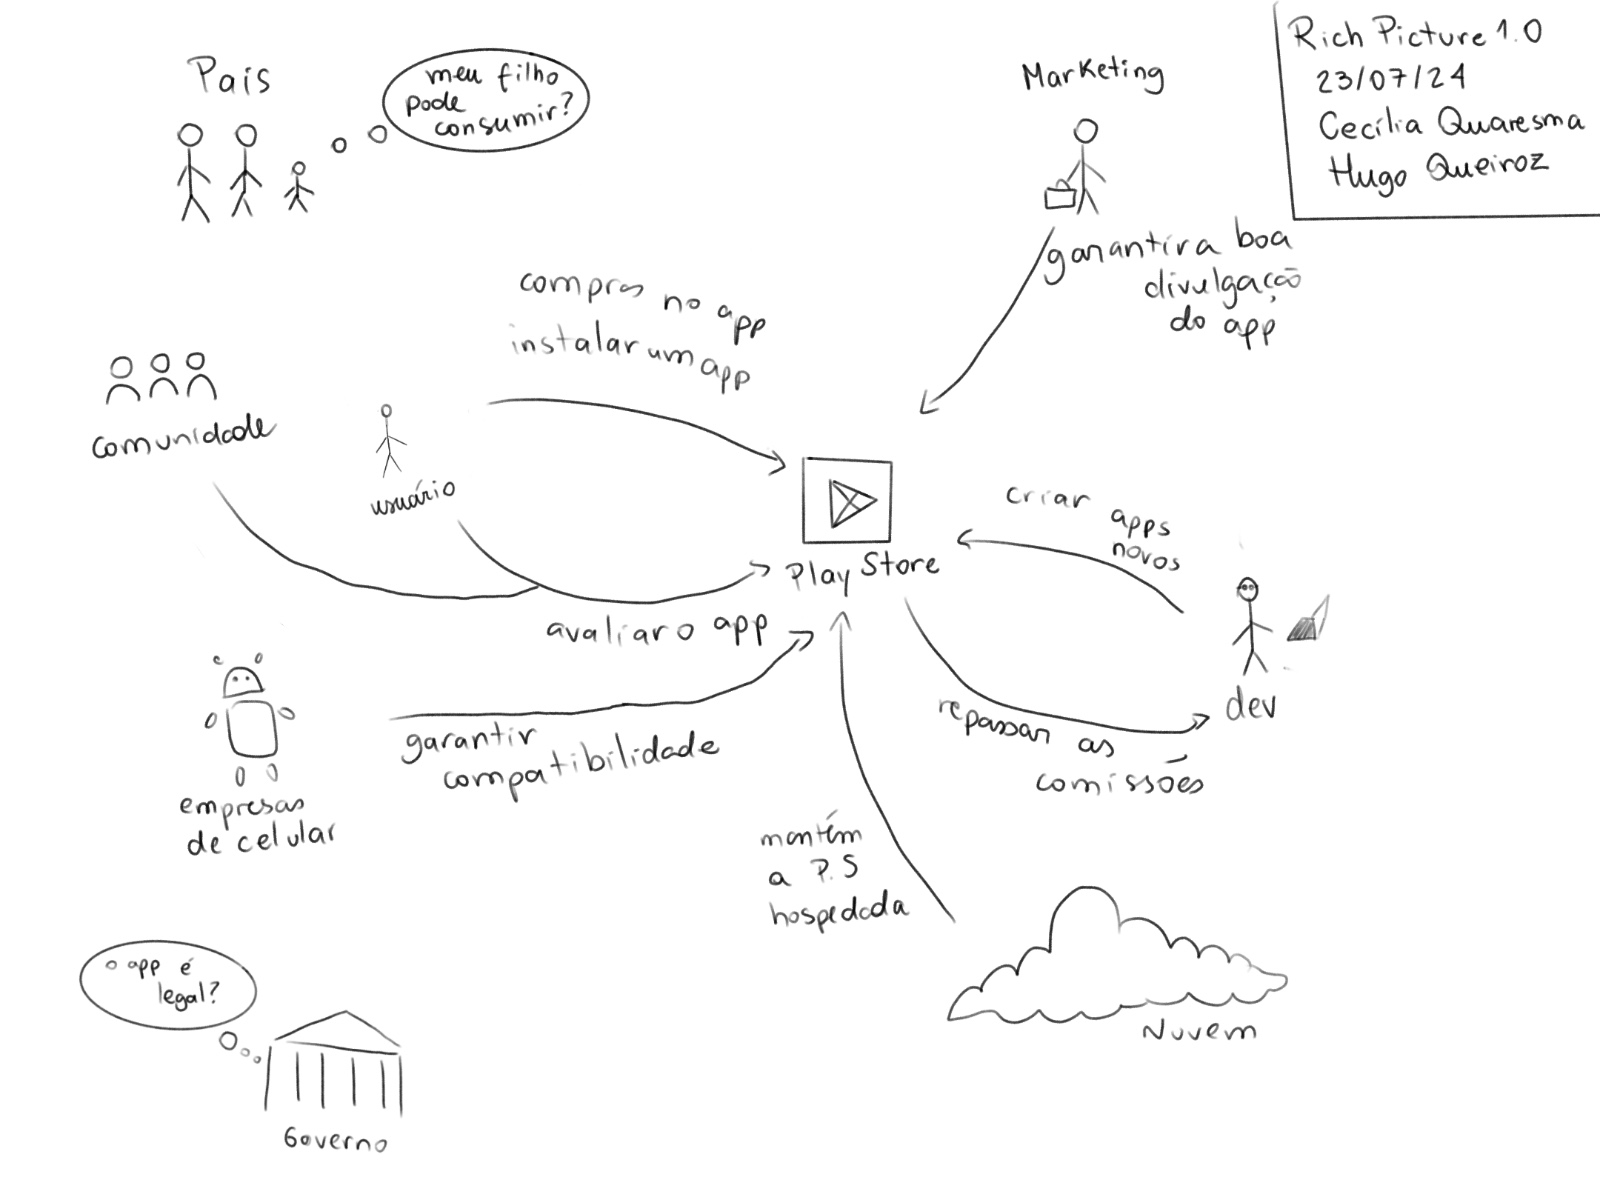 Rich Picture 1.0
23/07/24
Cecília Quaresma
Hugo Queiroz
País
meu filho
pode
consumir?
Marketing
garantir a boa
divulgação
do app
compras no app
instalar um app
comunidade
usuário
Play Store
criar apps
novos
avaliar o app
dev
repassar as
comissões
garantir
compatibilidade
empresas
de celular
mantém
a P.S
hospedada
Nuvem
o app é
legal?
Governo